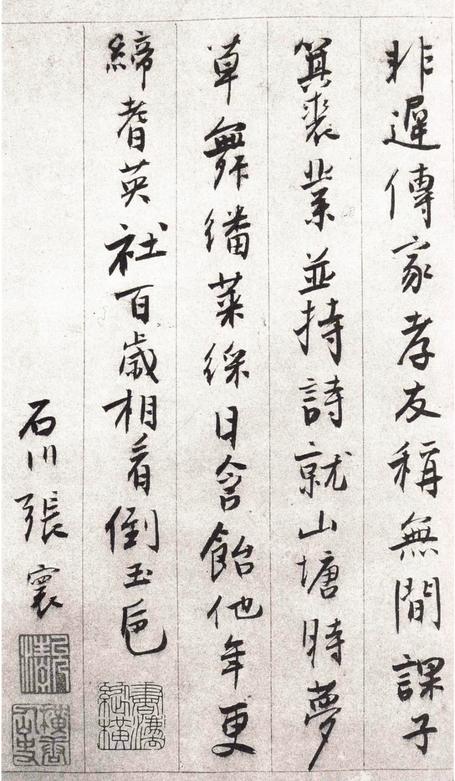 非遲傳家孝友稱無間課子
箕裘業並持詩就山塘時夢
草舞繙萊綵日含飴他年更
締耆英社百歲相看倒玉卮
石川張寰